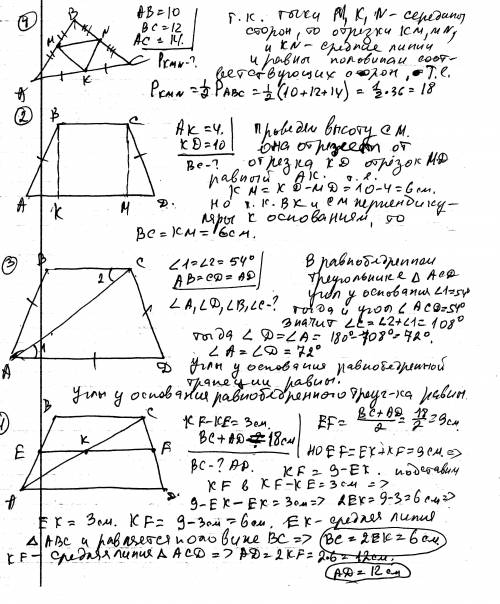 4
B
M
N
A
K
C
AB=10
BC=12
AC=14.
PKMN-?
т.к. точки M, K, N - середины
сторон, то отрезки KM, MN,
и KN - средние линии
и равны половинам соот-
ветствующих сторон, т.е.
PKMN = 1/2 PABC = 1/2 (10+12+14) = 1/2·36 = 18
2
B
C
A
K
M
D.
AK=4.
KD=10
BC-?
Проведем высоту CM.
она отрезает от
отрезка KD отрезок MD
равный AK. т.е.
KM=KD-MD=10-4=6см.
но т.к. BK и CM перпендику-
ляры к основаниям, то
BC=KM=6см.
3
B
C
2
1
A
D
∠1=∠2=54°
AB=CD=AD
∠A,∠D,∠B,∠C-?
В равнобедренном
треугольнике △ACD
углы у основания ∠1=54°
тогда и угол ∠ACD=54°
значит ∠C=∠2+∠1=108°
тогда ∠D=∠A=180°-108°=72°.
∠A=∠D=72°
углы у основания равнобедренной
трапеции равны.
Углы у основания равнобедренного треуг-ка равны.
B
C
E
K
F
A
D.
KF-KE=3см.
BC+AD=18см
BC-? AD.
EF=BC+AD/2=18/2=9см.
но EF=EK+KF=9см=>
KF=9-EK. подставим
KF в KF-KE=3см =>
9-EK-EK=3см=> 2EK=9-3=6см=>
EK=3см. KF=9-3см=6см. EK-средняя линия
△ABC и равняется половине BC => BC=2EK=6см
KF-средняя линия △ACD => AD=2KF=2·6=12см.
AD=12см